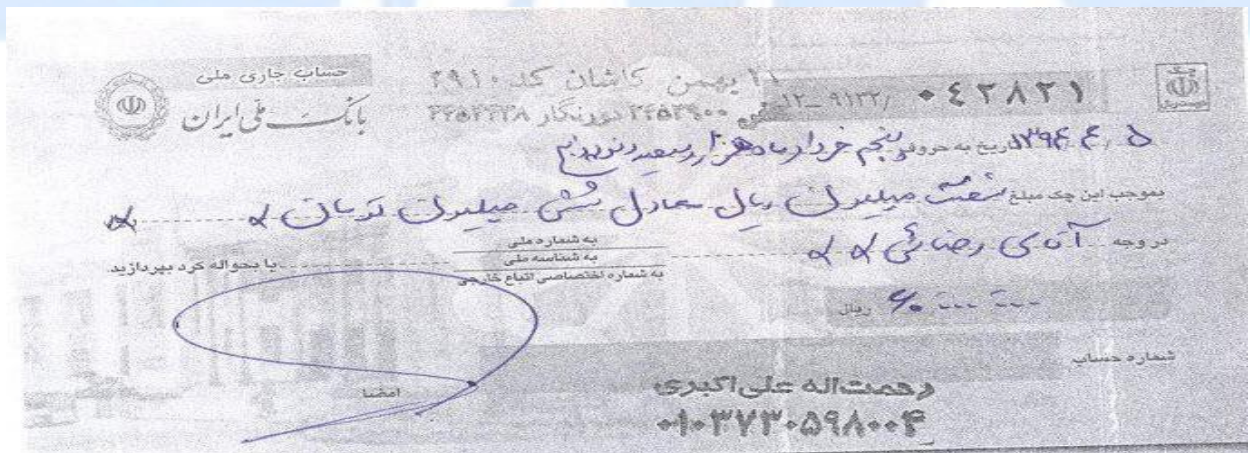 حساب جاری ملی
بانک ملی ایران
۱۱ بهمن کاشان کد ۲۹۱۰
دورنگار
۹۱۳۲/ ۰۴۲۸۲۱
تاریخ به حروف پنجم خرداد ماه هزار و سیصد و نود و پنج
بموجب این چک مبلغ شصت میلیون ریال معادل شش میلیون تومان
در وجه آقای رضائی
به شماره ملی
به شناسه ملی
به شماره اختصاصی اتباع خارجی
یا بحواله کرد بپردازید
۶۰ ۰۰۰ ۰۰۰ ریال
شماره حساب
امضا
رحمت اله علی اکبری
۰۱۰۳۷۳۰۵۹۸۰۰۴